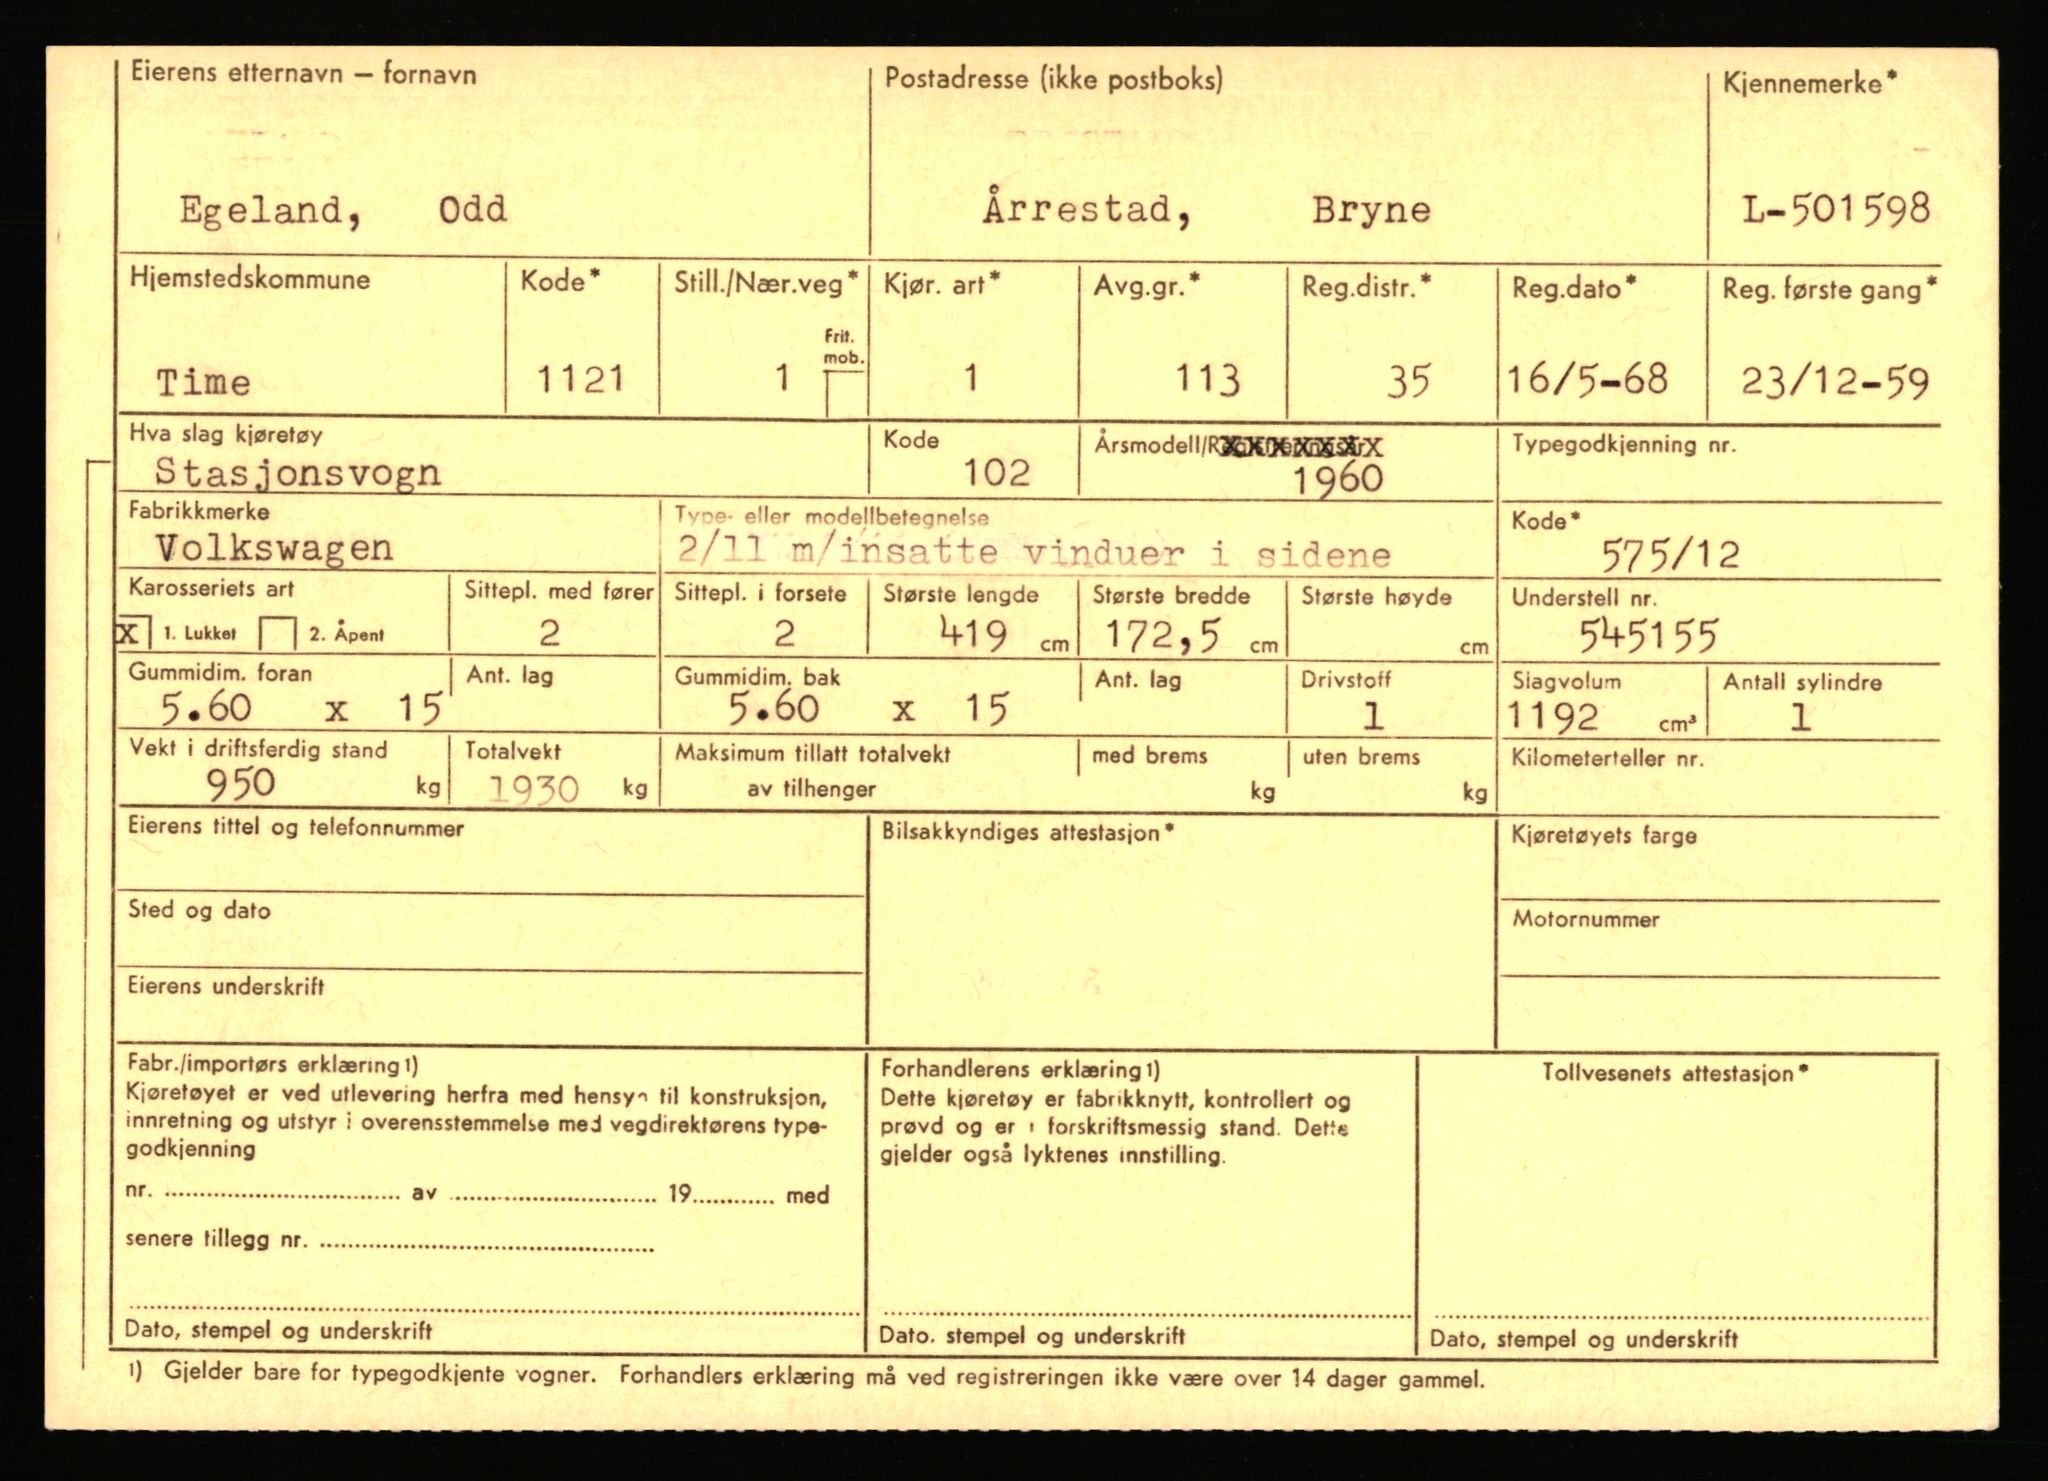 Eierens etternavn – fornavn
Postadresse (ikke postboks)
Kjennemerke*
Egeland, Odd
Årrestad, Bryne
L-501598
Hjemstedskommune
Kode*
Still./Nær.veg*
Kjør. art*
Avg.gr.*
Reg.distr.*
Reg.dato*
Reg. første gang*
Frit.
mob.
Time
1121
1
1
113
35
16/5-68
23/12-59
Hva slag kjøretøy
Kode
Årsmodell/
Typegodkjenning nr.
Stasjonsvogn
102
1960
Fabrikkmerke
Type- eller modellbetegnelse
Kode*
Volkswagen
2/11 m/insatte vinduer i sidene
575/12
Karosseriets art
Sittepl. med fører
Sittepl. i forsete
Største lengde
Største bredde
Største høyde
Understell nr.
X 1. Lukket 2. Åpent
2
2
419 cm
172,5 cm
cm
545155
Gummidim. foran
Ant. lag
Gummidim. bak
Ant. lag
Drivstoff
Slagvolum
Antall sylindre
5.60 x 15
5.60 x 15
1
1192 cm³
1
Vekt i driftsferdig stand
Totalvekt
Maksimum tillatt totalvekt
med brems
uten brems
Kilometerteller nr.
950 kg
1930 kg
av tilhenger
kg
kg
Eierens tittel og telefonnummer
Bilsakkyndiges attestasjon*
Kjøretøyets farge
Sted og dato
Motornummer
Eierens underskrift
Fabr./importørs erklæring 1)
Kjøretøyet er ved utlevering herfra med hensyn til konstruksjon,
innretning og utstyr i overensstemmelse med vegdirektørens type-
godkjenning
nr. ........ av ........ 19........ med
senere tillegg nr. ........
Dato, stempel og underskrift
Forhandlerens erklæring 1)
Dette kjøretøy er fabrikknytt, kontrollert og
prøvd og er i forskriftsmessig stand. Dette
gjelder også lyktenes innstilling.
Dato. stempel og underskrift
Tollvesenets attestasjon*
Dato, stempel og underskrift
1) Gjelder bare for typegodkjente vogner. Forhandlers erklæring må ved registreringen ikke være over 14 dager gammel.